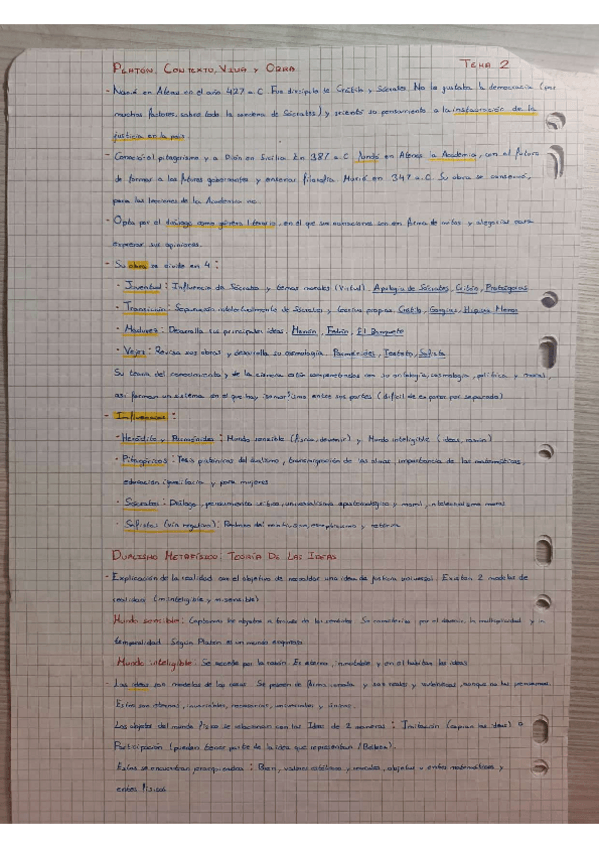 PLATÓN, CONTEXTO, VIDA Y OBRA TEMA 2
- Nació en Atenas en el año 427 a.C. Fue discípulo de Crátilo y Sócrates. No le gustaba la democracia (por
muchos factores, sobre todo la condena de Sócrates) y orientó su pensamiento a la instauración de la
justicia en la polis
- Conoció el pitagorismo y a Dión en Sicilia. En 387 a.C. fundó en Atenas la Academia, con el futuro
de formar a los futuros gobernantes y enseñar filosofía. Murió en 347 a.C. Su obra se conservó,
pero las lecciones de la Academia no.
- Opta por el diálogo como género literario, en el que sus narraciones son en forma de mitos y alegorías para
expresar sus opiniones.
- Su obra se divide en 4:
· Juventud: Influencia de Sócrates y temas morales (virtud). Apología de Sócrates, Critón, Protágoras
· Transición: Separación intelectualmente de Sócrates y teoría propia. Crátilo, Gorgias, Hipias, Menón
· Madurez: Desarrolla sus principales ideas. Menón, Fedón, El Banquete
· Vejez: Revisa sus obras y desarrolla su cosmología. Parménides, Teeteto, Sofista
Su teoría del conocimiento y de la ciencia están compenetradas con su ontología, cosmología, política y moral,
así forman un sistema en el que hay entre sus partes (difícil de exponer por separado)
- Influencias:
· Heráclito y Parménides: Mundo sensible (física, devenir) y Mundo inteligible (ideas, razón)
· Pitagóricos: Tesis pitagóricas del dualismo, transmigración de las almas, importancia de las matemáticas,
educación igualitaria y para mujeres
· Sócrates: Diálogo, pensamiento crítico, universalismo y moral, intelectualismo moral
· Sofistas (vía negativa): relativismo, escepticismo y retórica
DUALISMO METAFÍSICO: TEORÍA DE LAS IDEAS
- Explicación de la realidad con el objetivo de respaldar una idea de justicia universal. Existen 2 modelos de
realidad (m. inteligible y m. sensible)
Mundo sensible: Captamos los objetos a través de los sentidos. Se caracteriza por el devenir, la multiplicidad y la
temporalidad. Según Platón es un mundo engañoso.
Mundo inteligible: Se accede por la razón. Es eterno, inmutable y en él habitan las ideas
- Las ideas son modelos de las cosas. Se poseen de forma innata y son reales y auténticas, aunque no las pensemos.
Estas son eternas, invariables, necesarias, universales y únicas.
Los objetos del mundo físico se relacionan con las Ideas de 2 maneras: Imitación (copian las ideas) o
Participación (pueden tener parte de la idea que representan (Belleza).
Estas se encuentran jerarquizadas: Bien, valores estéticos y morales, objetos o entes matemáticos y
entes físicos